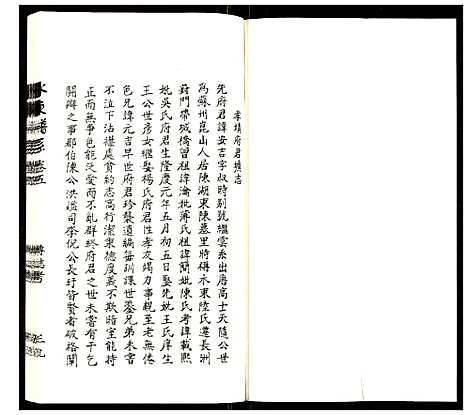 孝靖府君壙志
先府君諱安吉字叔時別號繼雲系出唐高士天隨公世
為蘇州崑山人居陳湖東陳墓里時稱水東陸氏遷長洲
葑門帶城橋曾祖諱淪妣蔣氏祖諱簡妣陳氏考諱載熙
妣吳氏府君生隆慶元年五月初五日娶先妣王氏庠生
王公世彥女繼娶楊氏府君性孝友竭力事親至老無倦
色兄諱元吉早世府君珍襲遺編每訓課世鎏兄弟未嘗
不泣下搆處貧約志高行潔秉德度義不欺暗室能持
正而無爭色能泛愛而不亂群終府君之世未嘗有干乞
關辯之事郡伯陳公洪謐司李倪公長玗皆賢者破格闡